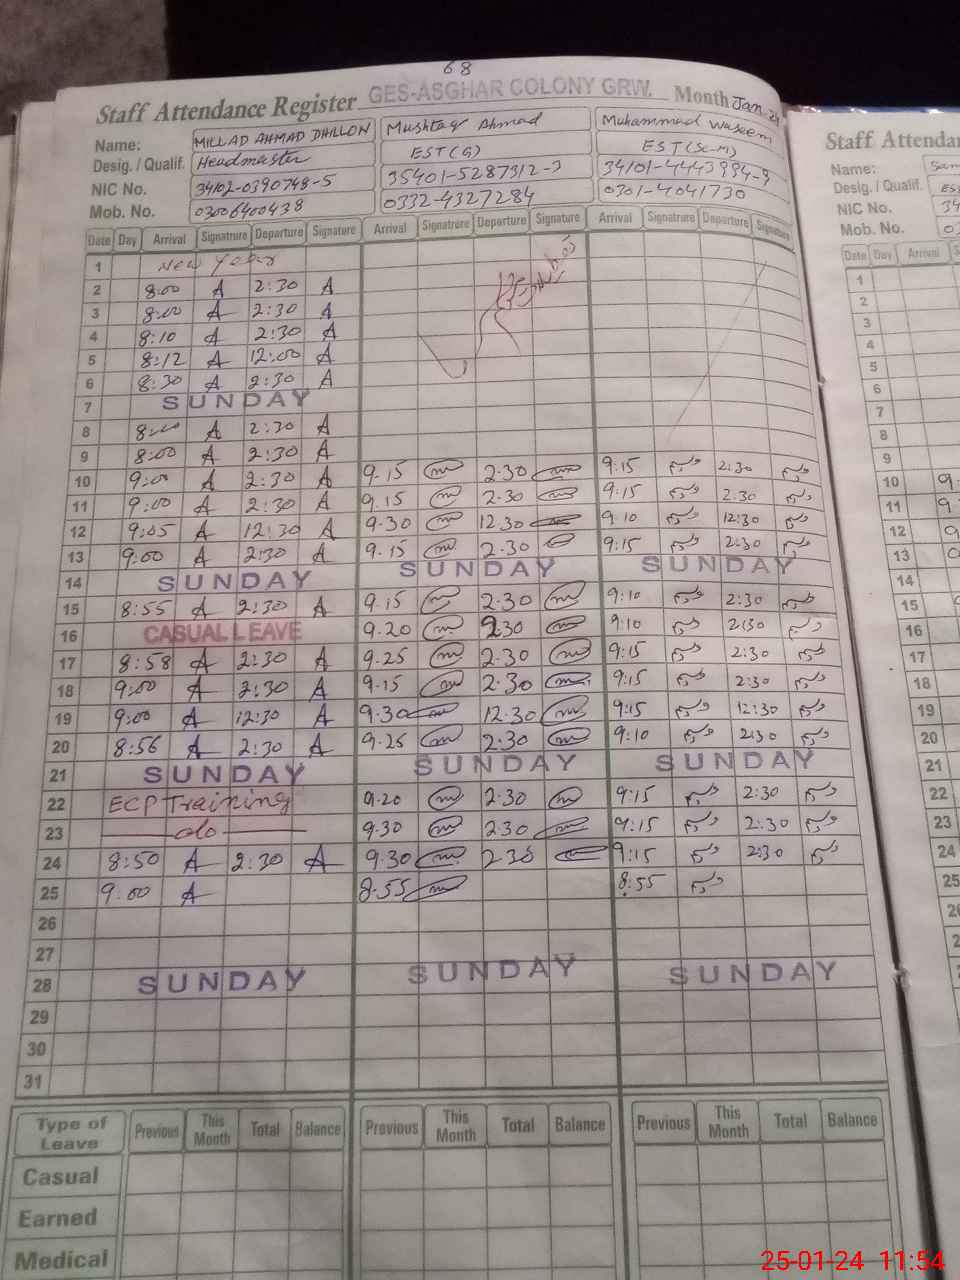 68
Staff Attendance Register GES-ASGHAR COLONY GRW. Month Jan-24
Name: MILLAD AHMAD DHILLON Mushtaq Ahmad Muhammad Waseem
Desig. / Qualif. Headmaster EST(G) EST(Sc-M)
NIC No. 34102-0390748-5 35401-5287312-3 34101-4443994-9
Mob. No. 03006400438 0332-4327284 0301-4041730
Date Day Arrival Signatrure Departure Signature Arrival Signatrure Departure Signature Arrival Signatrure Departure Signature
1 New Year
2 8:00 A 2:30 A
3 8:00 A 2:30 A
4 8:10 A 2:30 A
5 8:12 A 12:00 A
6 8:30 A 2:30 A
7 SUNDAY
8 8:00 A 2:30 A
9 8:00 A 2:30 A
10 9:00 A 2:30 A 9.15 2.30 9:15 2:30
11 9:00 A 2:30 A 9.15 2.30 9:15 2:30
12 9:05 A 12:30 A 9.30 12.30 9:10 12:30
13 9:00 A 2:30 A 9.15 2.30 9:15 2:30
14 SUNDAY SUNDAY SUNDAY
15 8:55 A 2:30 A 9.15 2.30 9:10 2:30
16 CASUAL LEAVE 9.20 2.30 9:10 2:30
17 8:58 A 2:30 A 9.25 2.30 9:15 2:30
18 9:00 A 2:30 A 9.15 2.30 9:15 2:30
19 9:00 A 12:30 A 9.30 12.30 9:15 12:30
20 8:56 A 2:30 A 9.25 2.30 9:10 2:30
21 SUNDAY SUNDAY SUNDAY
22 ECP Training 9.20 2.30 9:15 2:30
23 do 9.30 2.30 9:15 2:30
24 8:50 A 2:30 A 9.30 2.30 9:15 2:30
25 9:00 A 8.55 8:55
26
27
28 SUNDAY SUNDAY SUNDAY
29
30
31
Type of Leave Previous This Month Total Balance Previous This Month Total Balance Previous This Month Total Balance
Casual
Earned
Medical
Staff Attendan
Name: Sam
Desig. / Qualif. ES
NIC No. 34
Mob. No. 03
Date Day Arrival S
1
2
3
4
5
6
7
8
9
10 9
11 9
12 9
13 9
14
15
16
17
18
19
20
21
22
23
24
25
26
2
2
25-01-24 11:54